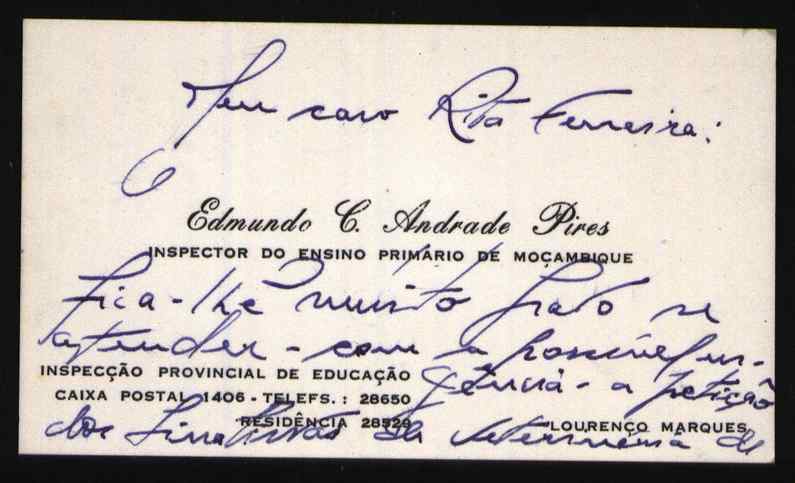 Meu caro Rita Ferreira:
O
Edmundo C. Andrade Pires
INSPECTOR DO ENSINO PRIMÁRIO DE MOÇAMBIQUE
fica-lhe muito grato se
atender - com a possível ur-
INSPECÇÃO PROVINCIAL DE EDUCAÇÃO
gência - a petição
CAIXA POSTAL 1406 - TELEFS.: 28650
RESIDÊNCIA 28529
LOURENÇO MARQUES
dos da de